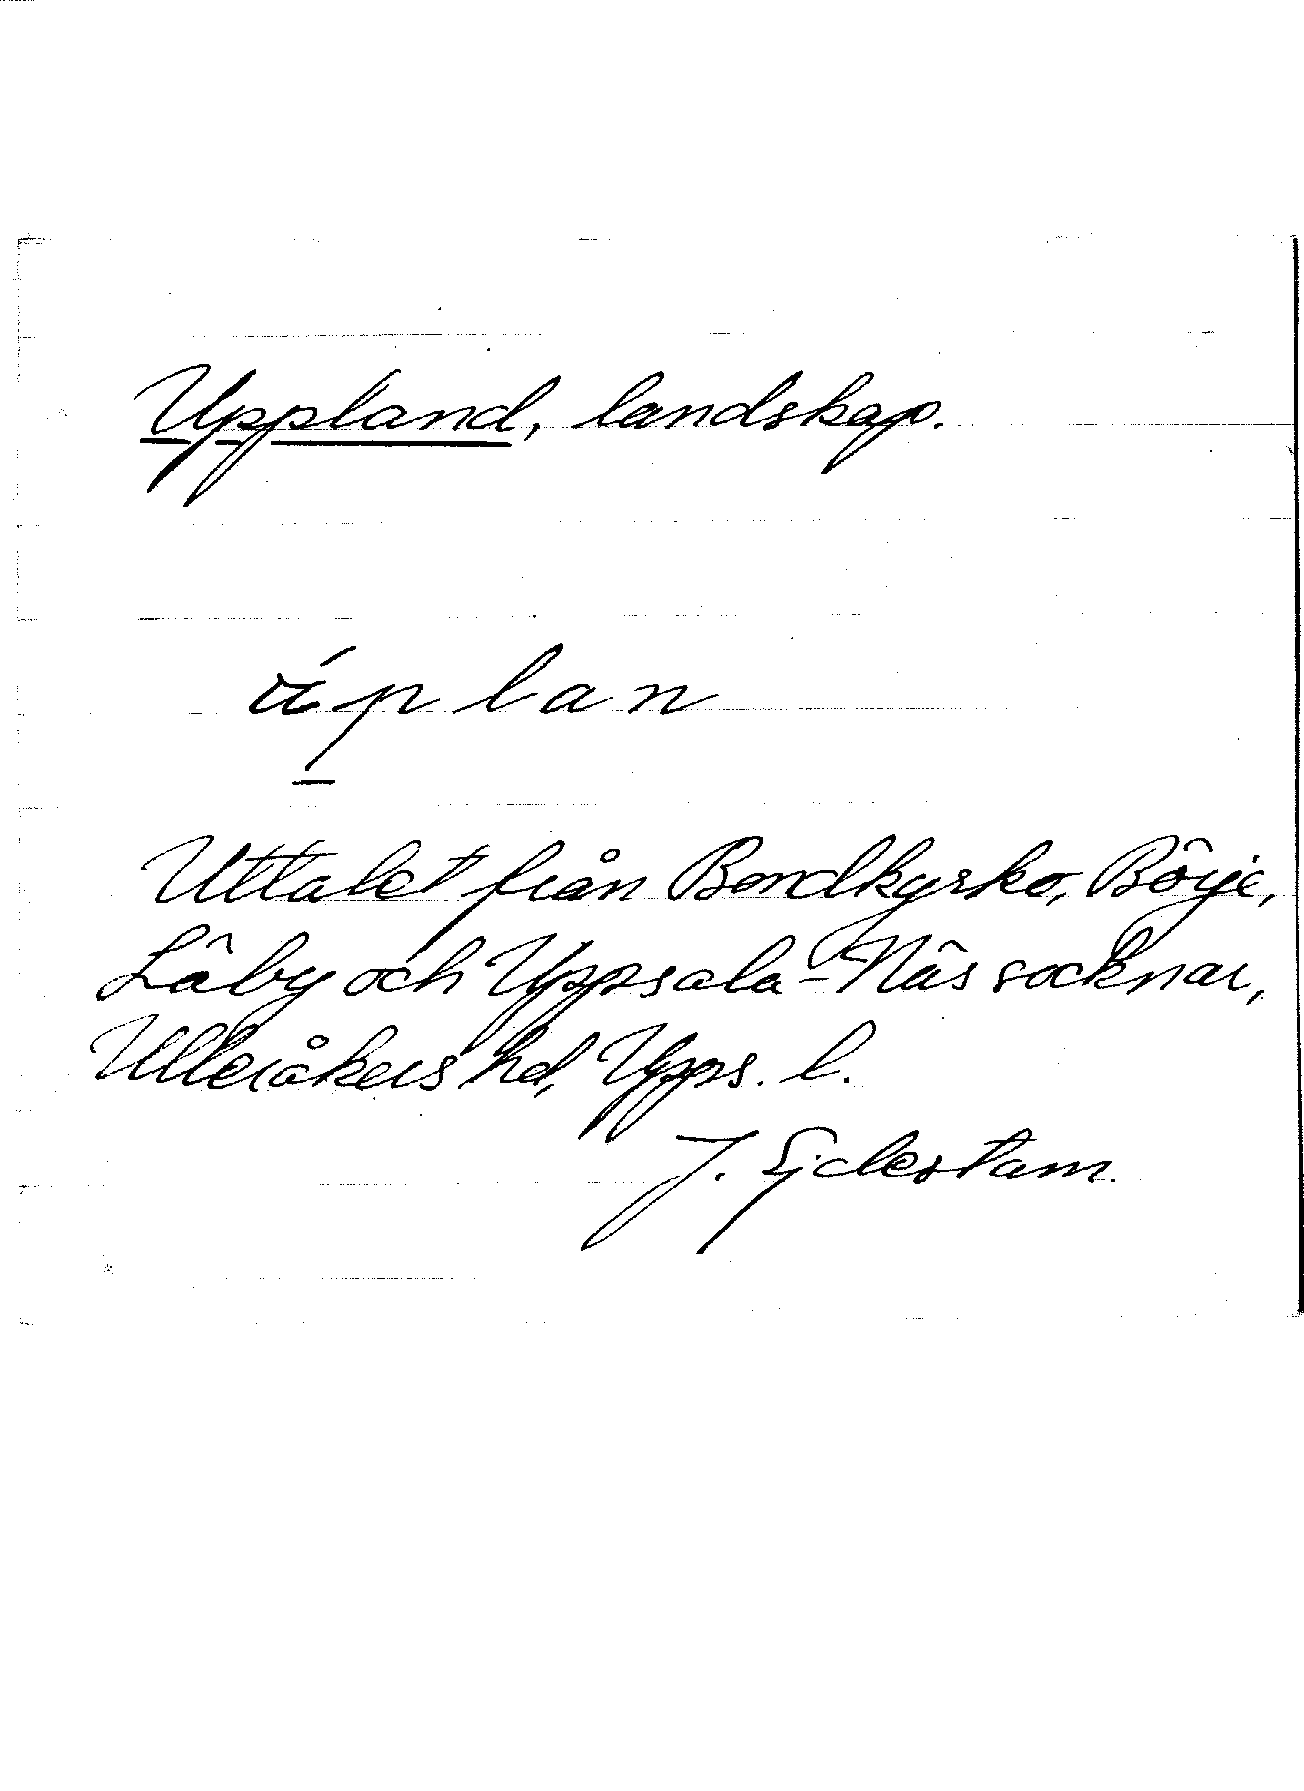 Uppland, landskap.
úplan
Uttalet från Bondkyrko, Börje,
Läby och Uppsala-Näs socknar,
Ulleråkers hd, Upps. l.
J. Sjdestam.